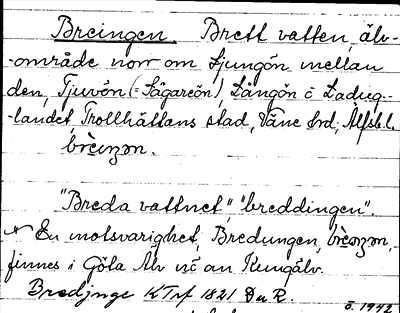 Breingen Brett vatten, älv-
-område norr om Ljungön mellan
den, Tjuvön (= Sågareön), Långön o Ladug-
-landet, Trollhättans stad, Väne hd, Älfsb. l.
brèiŋən.
"Breda vattnet", "breddingen".
En motsvarighet, Bredungen,
finnes i Göta Älv nö an Kungälv.
Bredjnge KTrf 1821 Du R.
ö. 1942